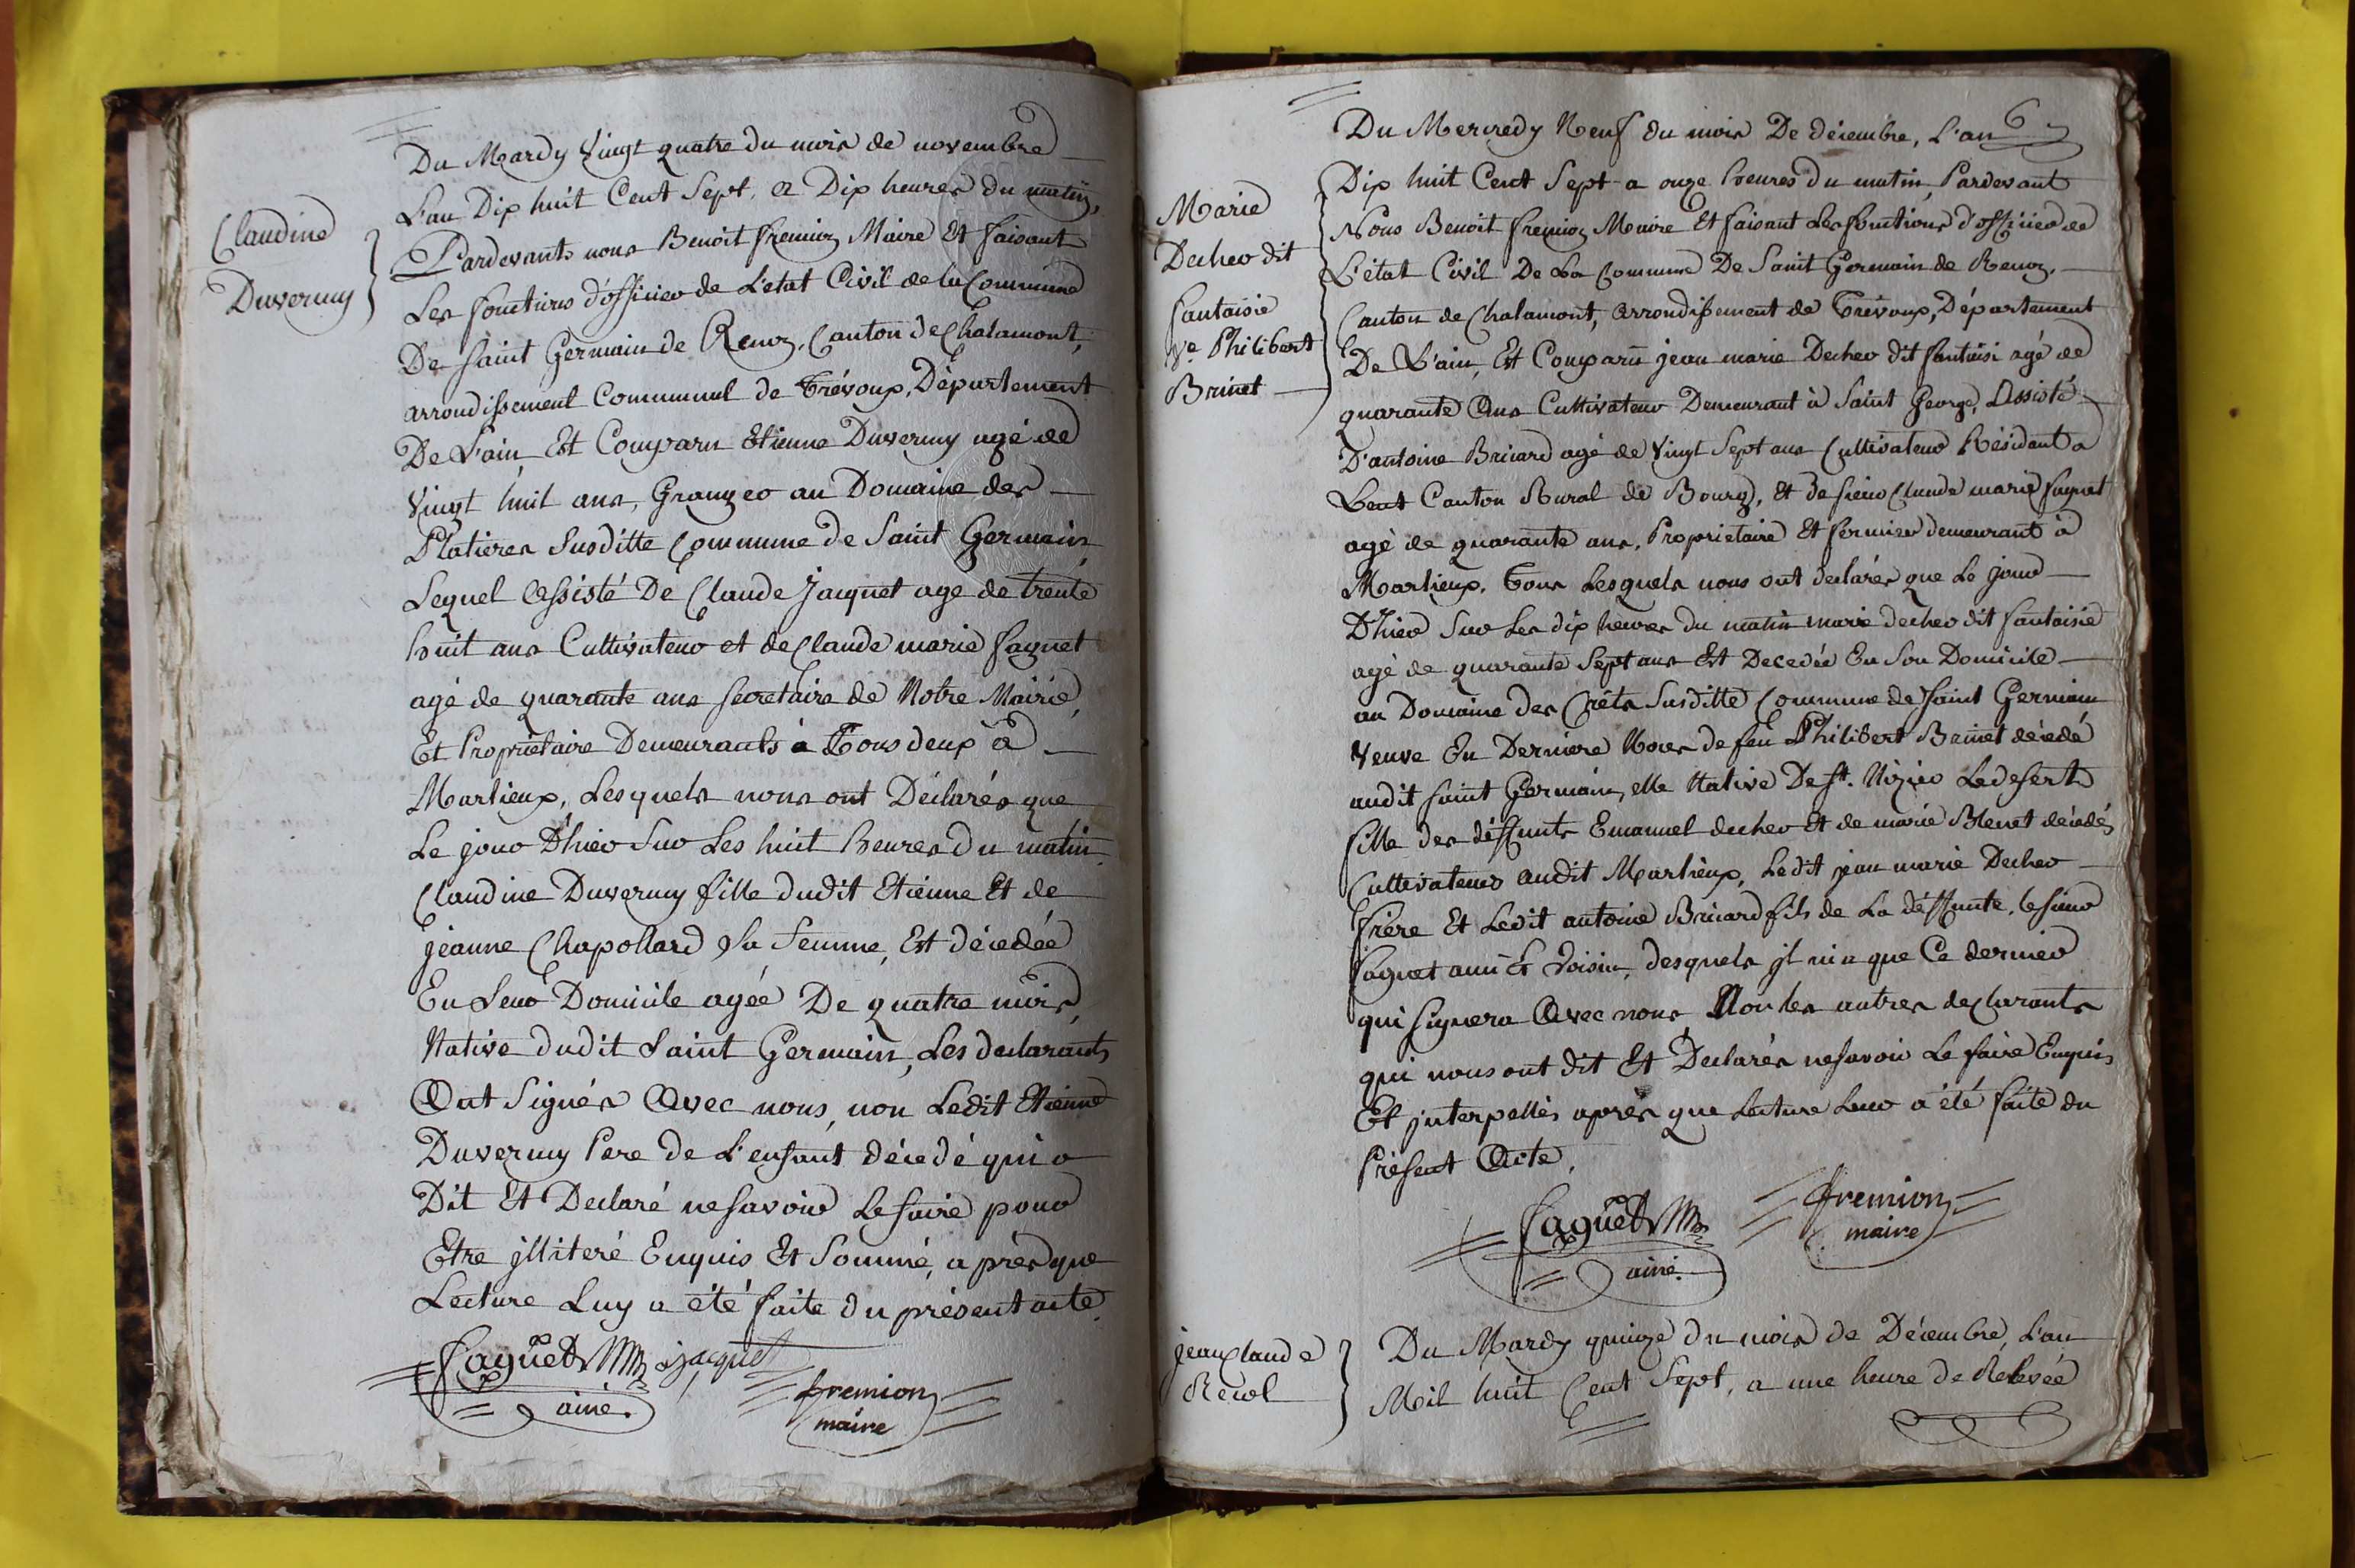 Claudine
Duvernay
Du Mardy Vingt quatre du mois de novembre
L'an Dix huit Cent Sept, a Dix heures du matin,
Pardevants nous Benoit fremion Maire Et faisant
Les fonctions d'officier de L'etat Civil de la Commune
De Saint Germain de Renon, Canton de Chalamont,
arrondissement Communal de Trévoux, Département
De L'ain, Est Comparu Etienne Duvernay agé de
Vingt huit ans, Granger au Domaine des
Platieres Susditte Commune de Saint Germain
Lequel assisté De Claude Jacquet age de trente
huit ans Cultivateur et de Claude marie faguet
agé de quarante ans secretaire de Notre Mairie,
Et Propriétaire Demeurants à Tous deux à
Marlieux, Lesquels nous ont Déclarés que
Le jour D'hier Sur Les huit heures du matin
Claudine Duvernay fille dudit Etienne Et de
jeanne Chapollard Sa femme, Est décedée
En Leur Domicile agée De quatre mois,
Native dudit Saint Germain, Les declarants
Ont Signés Avec nous, non Ledit Etienne
Duvernay Pere de L'enfant décedé qui a
Dit Et Declaré ne savoir Le faire pour
Etre jlliteré Enquis Et Sommé, après que
Lecture Luy a été faite du présent acte.
faguet jacquet
ainé. fremion
maire
Marie
Decher dit
fantaisie
Ve. Philibert
Brinet
Du Mercredy Neuf du mois De décembre, L'an
Dix huit Cent Sept a onze heures du matin, Pardevant
Nous Benoit fremion Maire Et faisant Les fonctions d'officier de
L'état Civil De La Commune De Saint Germain de Renon,
Canton de Chalamont, arrondissement de Trévoux, Département
De L'ain, Est Comparu jean marie Decher dit fantaisi agé de
quarante Ans Cultivateur Demeurant à Saint George, Assisté
D'antoine Bricard agé de Vingt Sept ans Cultivateur Résidant a
Lent Canton Rural de Bourg, et de sieur Claude marie faguet
agé de quarante ans, Proprietaire Et fermier demeurant à
Marlieux, Tous Lesquels nous ont declarés que Le jour
D'hier Sur Les dix heures du matin marie decher dit fantaisie
agé de quarante Sept ans Est Decedée En Son Domicile
au Domaine des Crêts Susditte Commune de Saint Germain
Veuve En Derniere Noces de feu Philibert Brinet décedé
audit Saint Germain, elle Native De St. Nizier Le desert
fille des déffunts Emanuel decher Et de marie Blenet décedés
Cultivateurs audit Marlieux, Ledit jean marie Decher
frère Et Ledit antoine Bricard fils de La déffunte, le sieur
faguet ami Et Voisin, desquels jl ni a que Ce dernier
qui signera Avec nous Non les autres declarants
qui nous ont dit Et Declarés ne savoir Le faire Enquis
Et jnterpellés après que Lecture Leur a été faite du
Présent Acte,
faguet fremion
ainé. maire
jean Claude
Revol
Du Mardy quinze du mois de Décembre, L'an
Mil huit Cent Sept, a une heure de Relevée